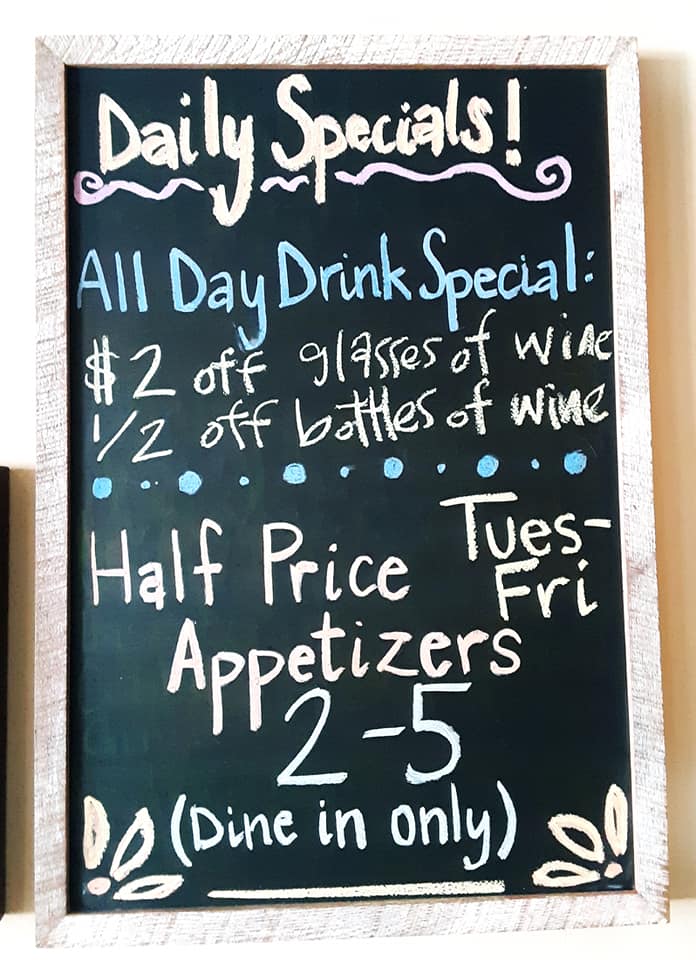 Daily Specials!
All Day Drink Special:
$2 off glasses of wine
1/2 off bottles of wine
Half Price Tues-
Fri
Appetizers
2-5
(Dine in only)